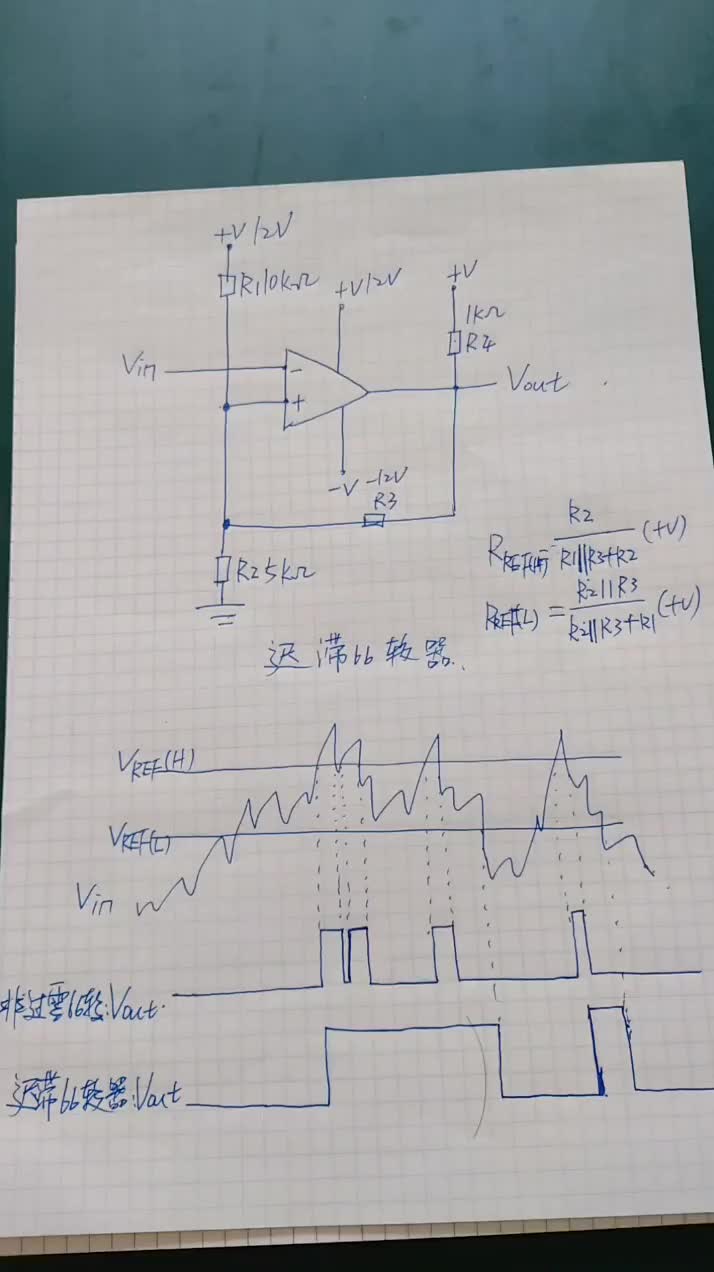 +V 12V
R1 10KΩ
+V 12V
+V
1KΩ
R4
Vin
-
+
Vout
-V -12V
R3
R2 5KΩ
R_REF(H) = R2 / (R1||R3+R2) (+V)
R_REF(L) = R2||R3 / (R2||R3+R1) (+V)
迟滞比较器
V_REF(H)
V_REF(L)
Vin
非过零比较:Vout
迟滞比较器:Vout